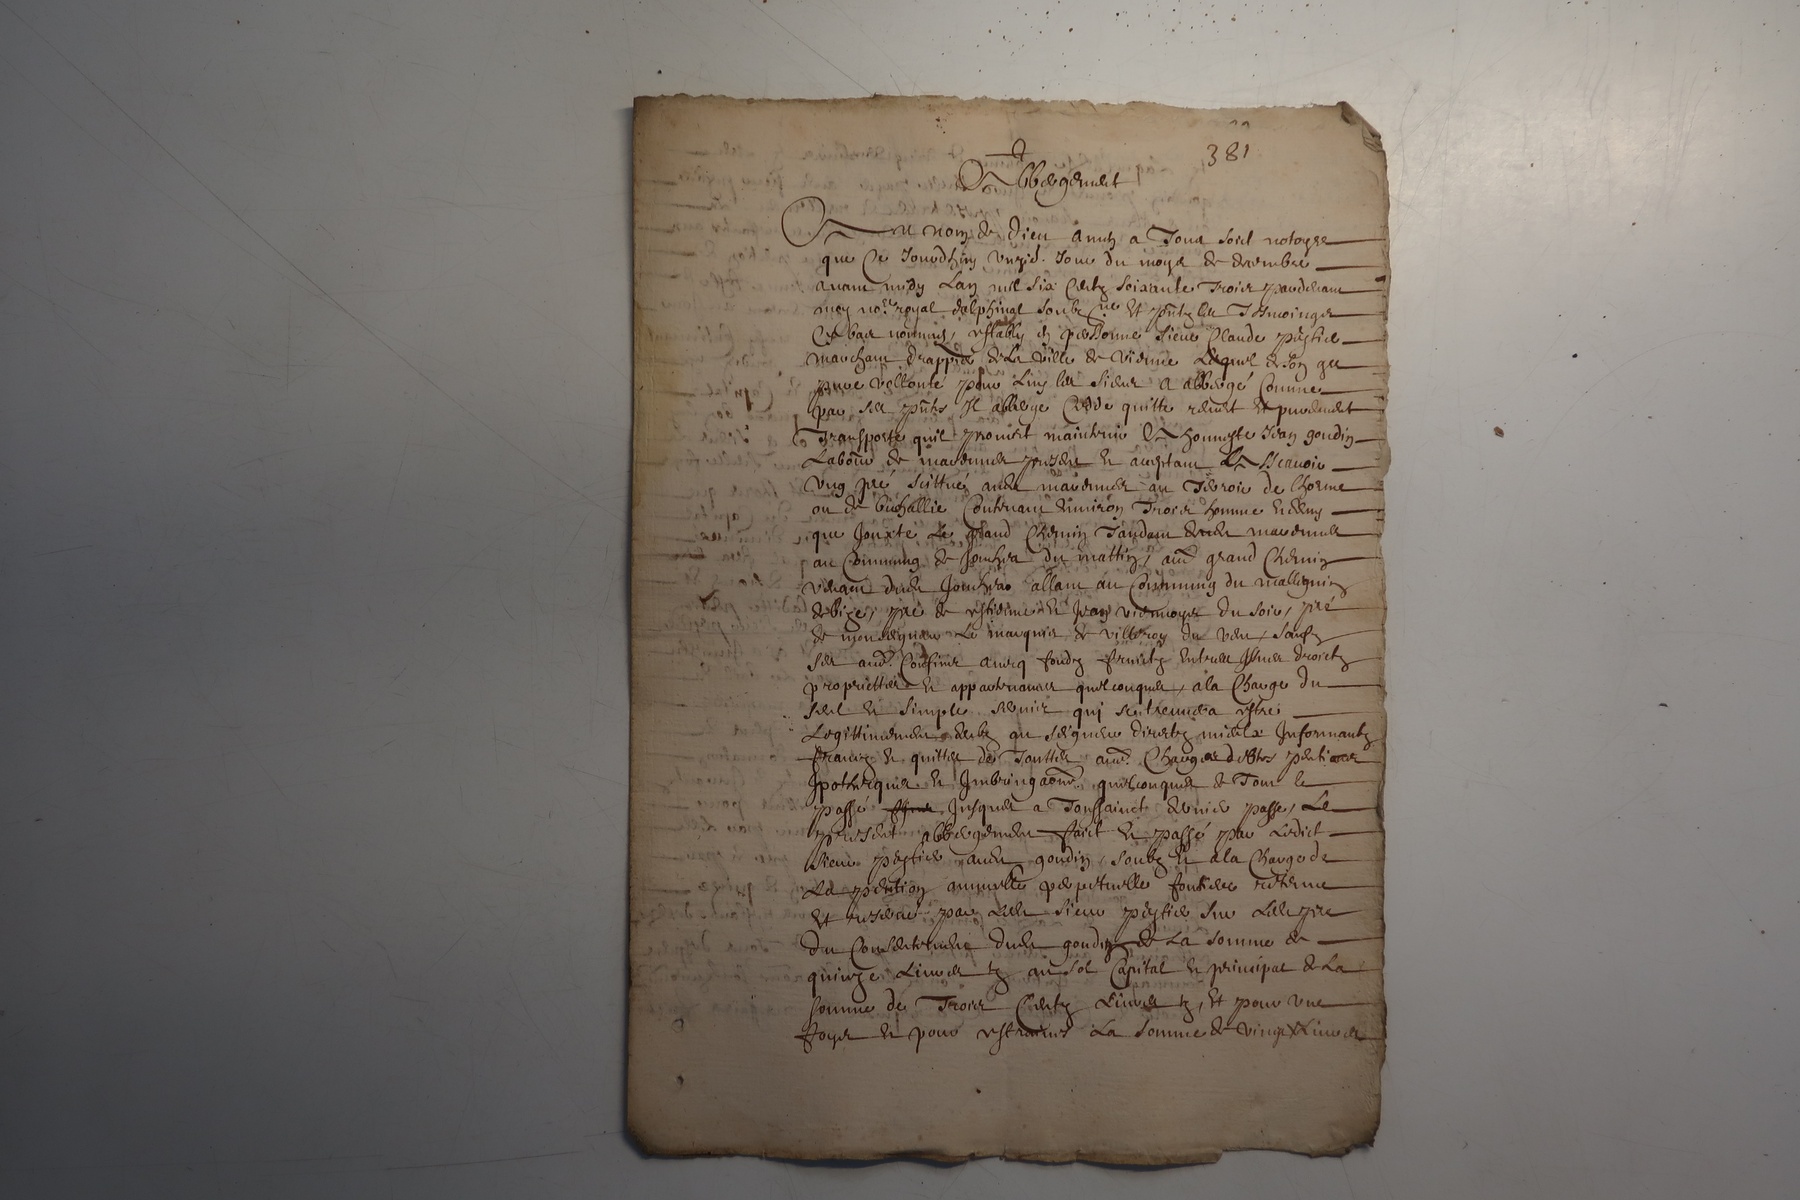 381
Abbergement
Au nom de Dieu Amen a Tous soict notoyre
que Ce Jourdhuy unzie. Jour du moys de decembre
avant midy Lan mil six Centz soixante Trois pardevant
moy no.re royal dalphinal soubz.ne Et pntz les Tesmoings
Cy bas nommes, estably en personne sieur Claude
marchant drappier de La ville de vienne Lequel de son gre
pure vollonté pour Luy les siens a abbergé Comme
par ses pntes Il abberge Cedde quitte remet Et purement
Transporte quil promet maintenir A honneste Jean goudin
Labour. de marennes present et acceptant A scavoir
Ung pré scittué audit marennes au Terroir de
ou de Contenant Environ Trois homme et demy
que Jouxte Le grand Chemin Tandant dudit marennes
au Commung de du mattin, au.e grand Chemin
venant dudit allant au Commung du
de bize, pré de et Jean du soir, pré
de monseigneur Le marquis de villeroy du vent, saufz
ses au.es Confins avecq fondz fruictz Entrees Issues droictz
proprietties et appartenances quelconques, a la Charge du
seul et simple servis qui se treuvera estre
Legittimement deubz au seigneur directz mieux Informantz
francz et quitte de Touttes au.es Charges debtes pentions
Ipotheques et quelconques de Tout le
passé Jusques a Toussainct dernier passe, Le
present abbergement faict et passé par Ledict
sieur audit goudin, soubz et a la Charge de
La pention annuelle perpetuelle fontiere retenue
Et reservée par Ledit sieur sur Ledit pre
du Consentement dudit goudin de La somme de
quinze Livres tz au sol Capital et principal de La
somme de Trois Centz Livres tz, Et pour une
foys et pour estraines La somme de vingt Livres